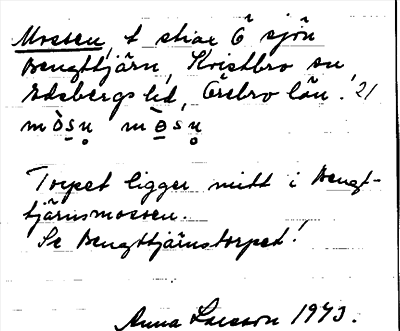 Mossen, t strax Ö sjön
Bengttjärn, Kvistbro sn,
Edsbergs hd, Örebro län. 21
mòsn̥ mòsn̥
Torpet ligger mitt i Bengt-
tjärnsmossen.
Se Bengttjärnstorpet!
Anna Larsson 1943.